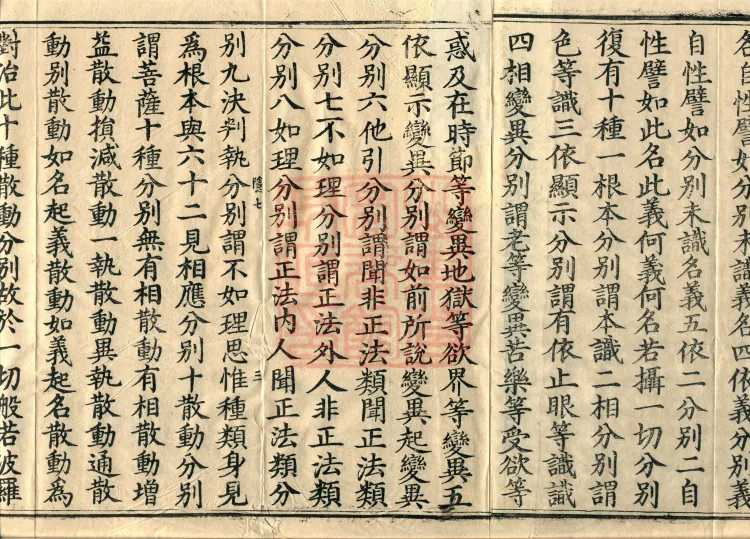 名自性譬如分別未識義名四依義分別義
自性譬如分別未識名義五依二分別二自
性譬如此名此義何義何名若攝一切分別
復有十種一根本分別謂本識二相分別謂
色等識三依顯示分別謂有依止眼等識識
四相變異分別謂老等變異苦樂等受欲等
惑及在時節等變異地獄等欲界等變異五
依顯示變異分別謂如前所說變異起變異
分別六他引分別謂聞非正法類聞正法類
分別七不如理分別謂正法外人非正法類
分別八如理分別謂正法內人聞正法類分
隱七 三
別九決判執分別謂不如理思惟種類身見
為根本與六十二見相應分別十散動分別
謂菩薩十種分別無有相散動有相散動增
益散動損減散動一執散動異執散動通散
動別散動如名起義散動如義起名散動為
對治此十種散動分別故於一切般若波羅